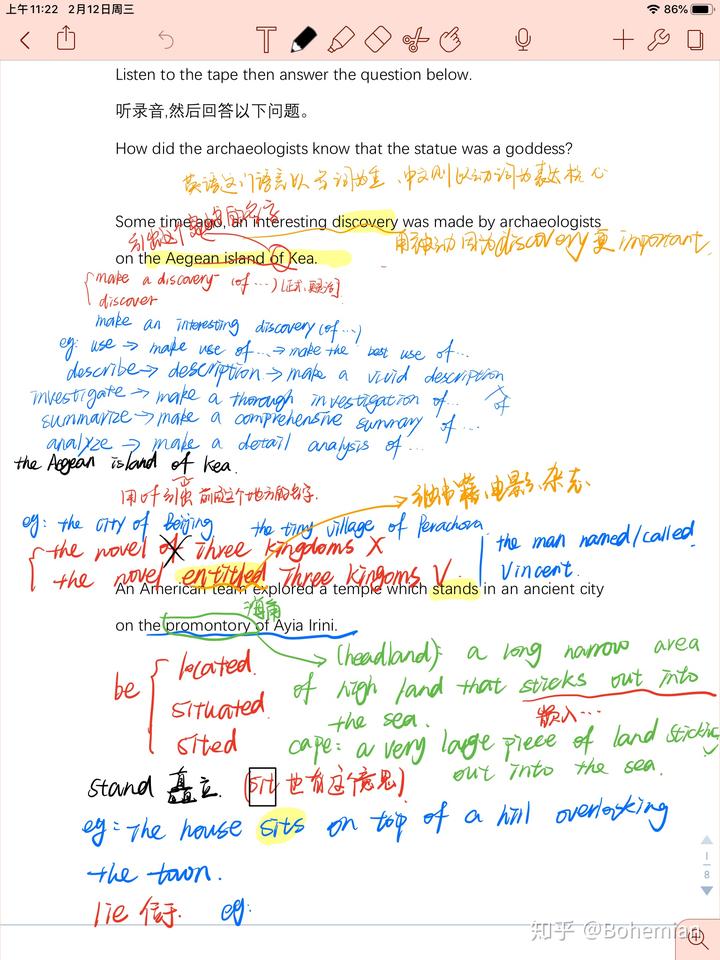 上午11:22 2月12日周三 86%
Listen to the tape then answer the question below.
听录音,然后回答以下问题。
How did the archaeologists know that the statue was a goddess?
英语这门语言以名词为重、中文则以动词为表达核心
Some time ago, an interesting discovery was made by archaeologists
引出这个地方的名字
用被动因为discovery更important.
on the Aegean island of Kea.
make a discovery (of ...)
discover
make an interesting discovery (of ...)
eg: use → make use of ... → make the best use of ...
describe → description → make a vivid description of
investigate → make a thorough investigation of ...
summarize → make a comprehensive summary of ...
analyze → make a detail analysis of ...
the Aegean island of Kea.
用of引出前面这个地方的名字.
引出书籍、电影、杂志
eg: the city of Beijing the tiny village of Perachora
the novel of Three kingdoms X
the novel entitled Three kingoms V
the man named/called Vincent.
An American team explored a temple which stands in an ancient city
海角
on the promontory of Ayia Irini.
be located.
situated.
sited
(headland): a long narrow area
of high land that sticks out into
the sea.
嵌入...
cape: a very large piece of land sticking
out into the sea.
stand 矗立. (sit 也有这个意思)
eg: The house sits on top of a hill overlooking
the town.
lie 位于. eg:
1
8
知乎 @Bohemian